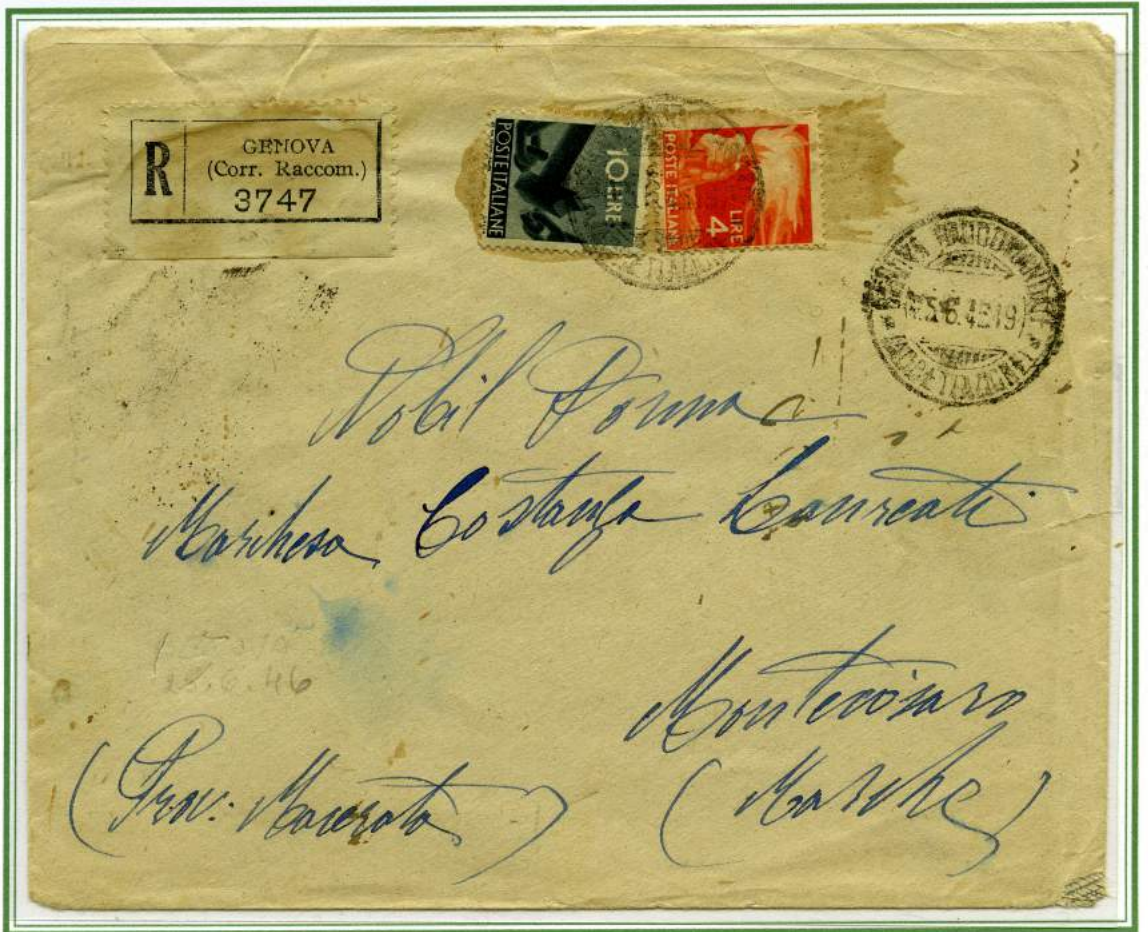 R
GENOVA
(Corr. Raccom.)
3747
POSTE ITALIANE
10 LIRE
POSTE ITALIANE
LIRE
4
Nobil Donna
Marchesa Costanza Laureati
Montecosaro
(Marche)
(Prov: Macerata)
.6.46